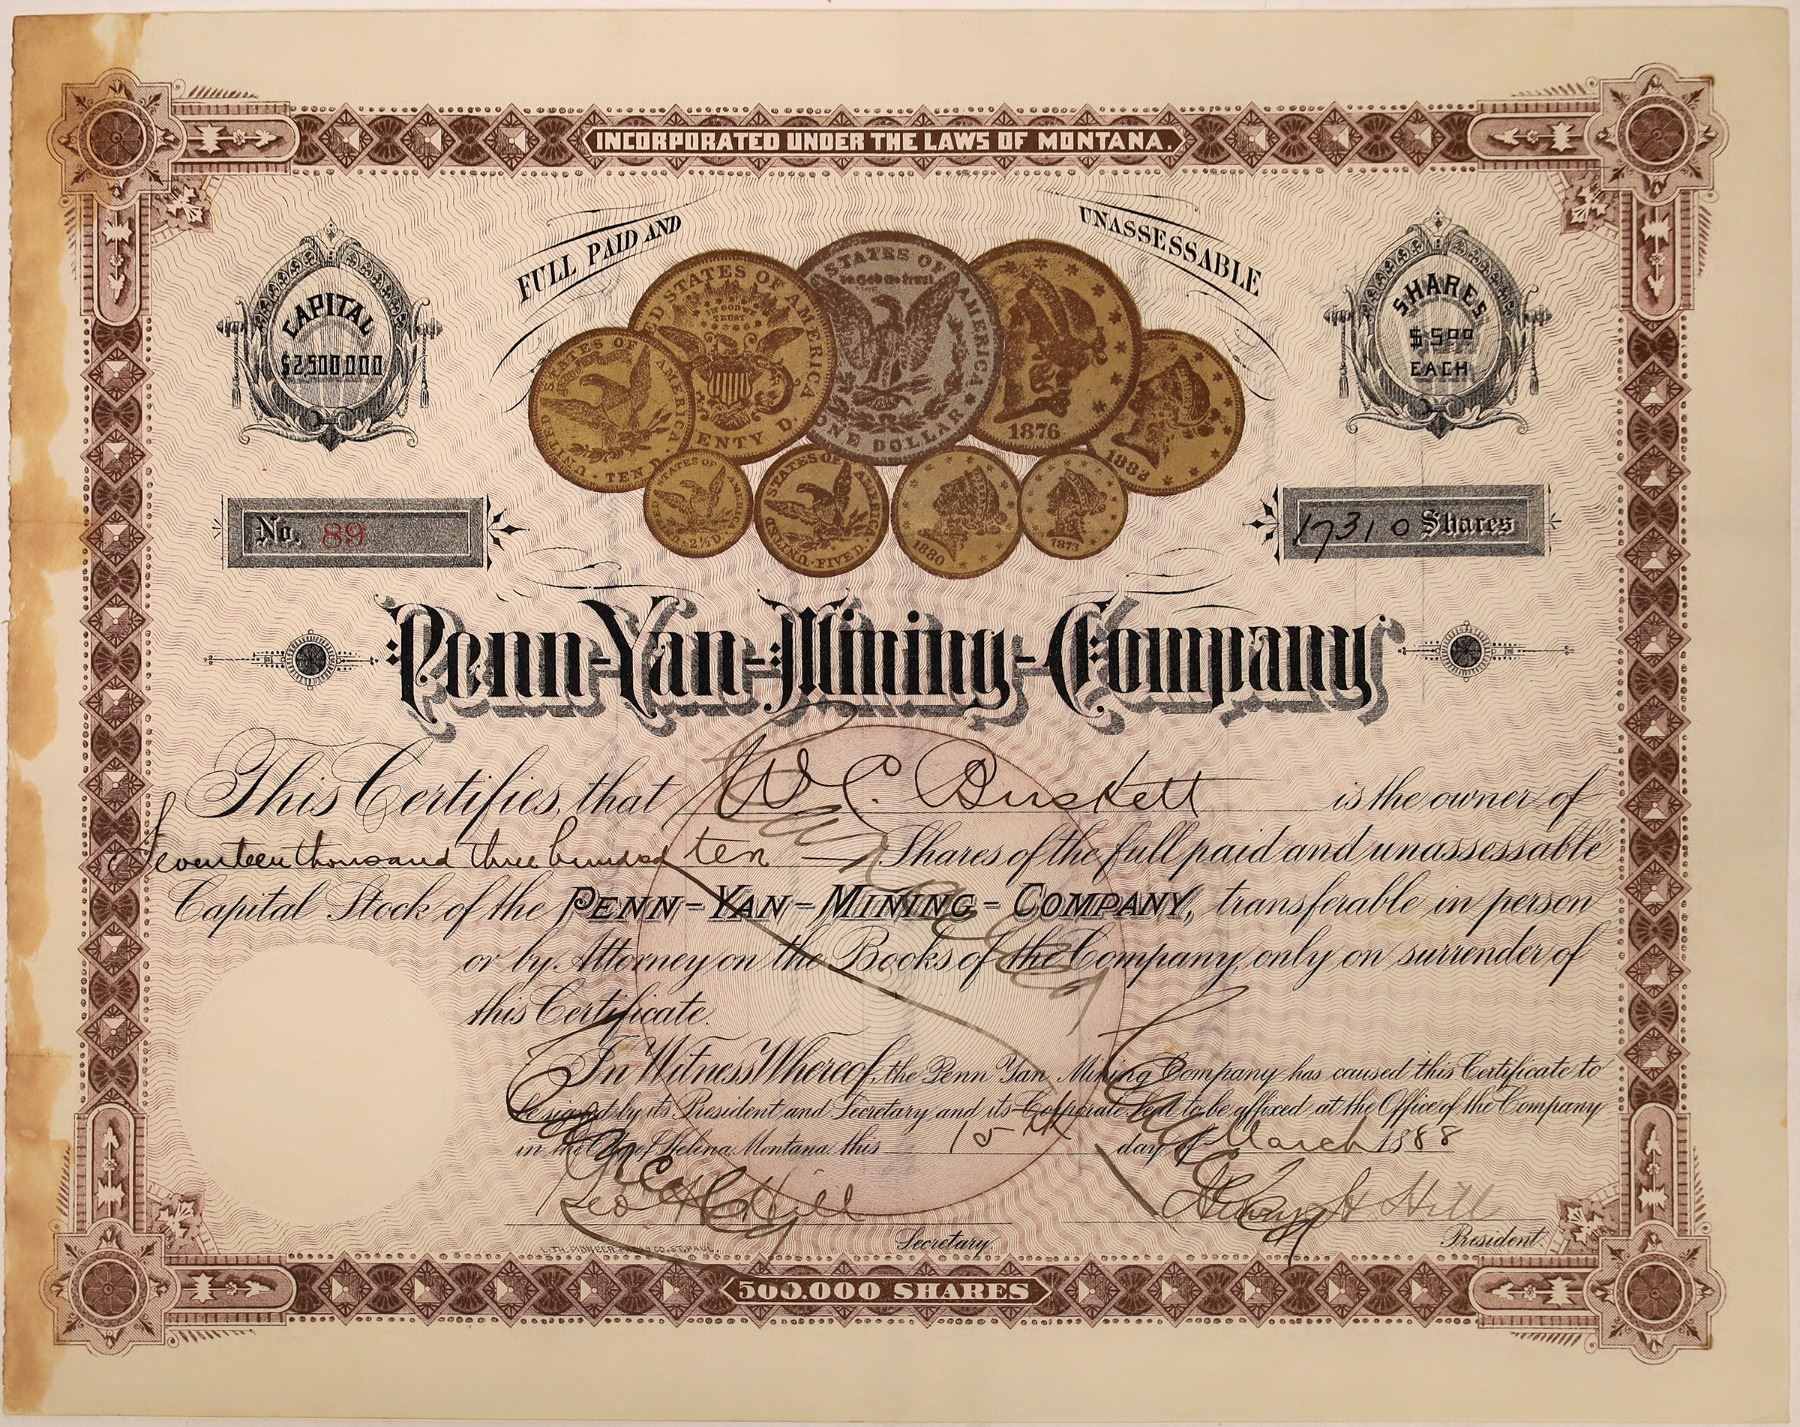 INCORPORATED UNDER THE LAWS OF MONTANA.
FULL PAID AND UNASSESSABLE
CAPITAL
$2,500,000
SHARES
$500
EACH
STATES OF AMERICA
UNITED · TEN D.
ED STATES OF AMERICA
IN GOD WE
TRUST
ENTY D.
STATES OF AMERICA
In God we trust
ONE DOLLAR
1876
1882
STATES OF AMERICA
2½ D.
STATES OF AMERICA
UNITED · FIVE D.
1880
1873
No. 89
17310 Shares
Penn-Yan-Mining-Company
This Certifies, that W C. Buskett is the owner of
Seventeen thousand three hundred ten — Shares of the full paid and unassessable
Capital Stock of the PENN-YAN-MINING-COMPANY, transferable in person
or by Attorney on the Books of the Company, only on surrender of
this Certificate.
In Witness Whereof, the Penn Yan Mining Company has caused this Certificate to
be signed by its President and Secretary and its Corporate Seal to be affixed at the Office of the Company
in the City of Helena, Montana this 15th day of March 1888
Cancelled
Cancelled
Cancelled
Geo H Hill
Secretary
Henry H Hill
President
LITH. PIONEER PRESS CO. ST. PAUL.
500.000 SHARES